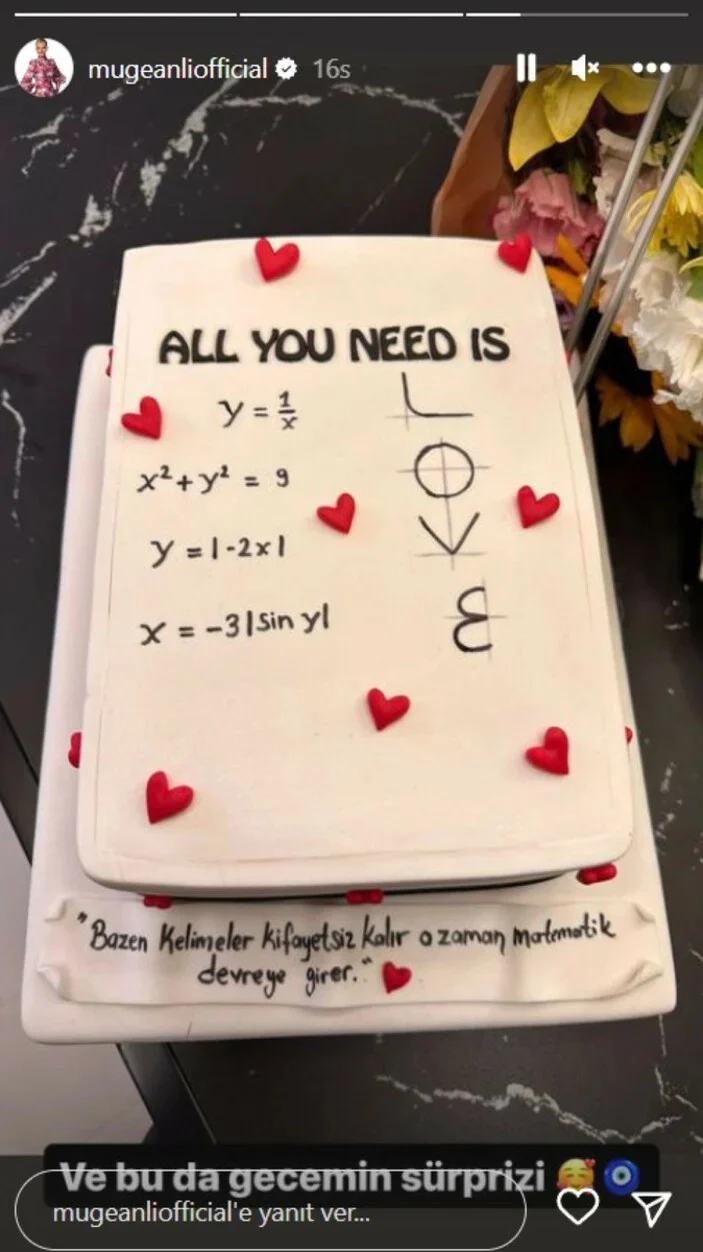 mugeanliofficial 16s
ALL YOU NEED IS
y = 1/x
x² + y² = 9
y = |-2x|
x = -3|sin y|
"Bazen Kelimeler kifayetsiz kalır o zaman matematik
devreye girer."
Ve bu da gecemin sürprizi 🥰🧿
mugeanliofficial'e yanıt ver...